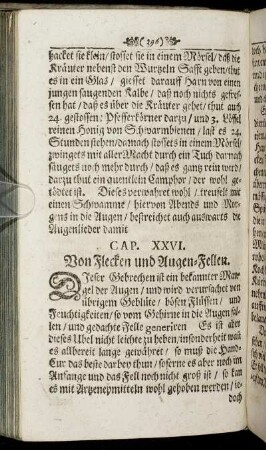 (296)
hacket sie klein/ stosset sie in einem Mörsel/ daß die
Kräuter nebenst den Wurzeln Safft geben/ thut
es in ein Glas/ giesset darauff Harn von einen
jungen saugenden Kalbe/ daß noch nichts gefres-
sen hat/ daß es über die Kräuter gehet/ thut auch
24. gestossen: Pfefferkörner darzu/ und 3. Löffel
reinen Honig von Schwarmbienen/ last es 24.
Stunden stehen/ darnach stossets in einem Mörsel/
zwingets mit aller Macht durch ein Tuch darnach
saugets noch mehr durch/ daß es ganz rein werd/
darzu thut ein quentlein Camphor/ der wohl ge-
tödtet ist. Dieses verwahret wohl/ treufelt mit
einen Schwamme/ hiervon Abends und Mor-
gens in die Augen/ bestreichet auch auswarts die
Augenlieder damit
CAP. XXVI.
Von Flecken und Augen-Fellen.
Dieser Gebrechen ist ein bekannter Man-
gel der Augen/ und wird verursachet von
übrigem Geblüte/ bösen Flüssen/ und
Feuchtigkeiten/ so vom Gehirne in die Augen fal-
len/ und gedachte Felle generiren Es ist aber
dieses Ubel nicht leichte zu heben/ insonderheit wañ
es allbereit lange gewähret/ so muß die Hand-
Cur das beste darbey thun/ soferne es aber noch im
Anfange und das Fell noch nicht groß ist/ so kan
es mit Artzeneymitteln wohl gehoben werden/ ie-
doch